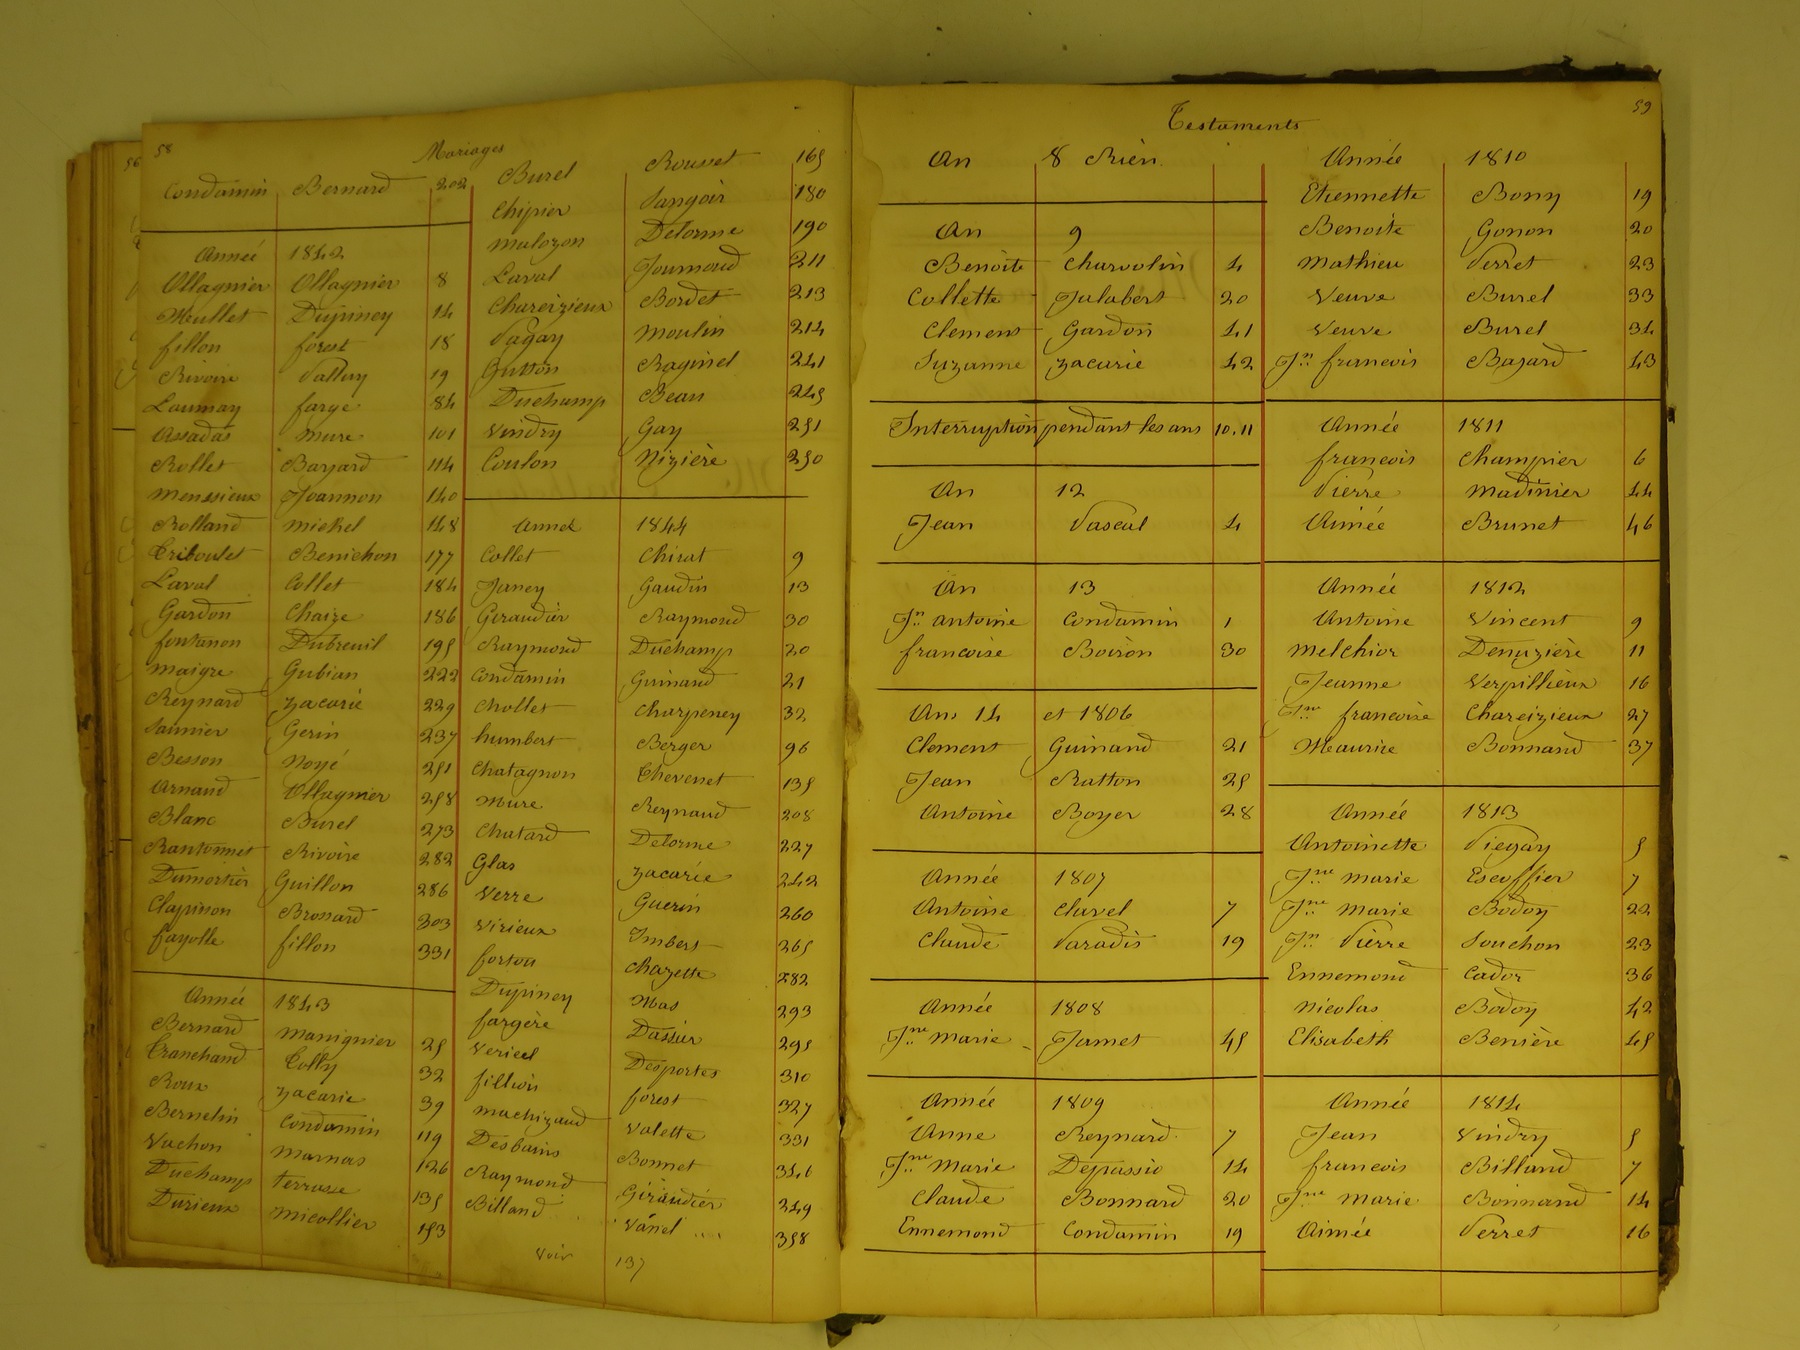 58
Mariages
Condamin Bernard 202
Année 1842
Ollagnier Ollagnier 8
Meullet Dupiney 14
fillon forest 18
Rivoire Valluy 19
Laurnay farge 84
Assadas Mure 101
Rollet Bayard 114
Menssieux Joannon 140
Rolland Michel 148
Triboulet Benichon 177
Laval Collet 184
Gardon Chaize 186
fontanon Dubreuil 195
Maigre Gubian 222
Reynard Zacarie 229
Saunier Gerin 237
Besson Noyé 251
Arnaud Ollagnier 258
Blanc Burel 273
Rantonnet Rivoire 282
Dumortier Guillon 286
Clapisson Brossard 303
fayolle fillon 331
Année 1843
Bernard Manignier 25
Tranchand Colly 32
Roux Zacarie 39
Bernelin Condamin 119
Vachon Marnas 126
Duchamp terrasse 135
Durieux Micollier 153
Burel Rousset 165
Chipier Sangoir 180
Malozon Delorme 190
Laval Journoud 211
Chareizieux Bordet 213
Pagay Moulin 214
Gutton Raginel 241
Duchamp Bean 245
Vindry Gay 251
Coulon Nizière 250
Année 1844
Collet Chirat 9
Janey Gaudin 13
Giraudier Raymond 30
Raymond Duchamp 20
Condamin Guinand 21
Chollet Charpeney 32
humbert Berger 96
Chatagnon Thevenet 135
Mure Reynaud 208
Chatard Delorme 227
Glas Zacarie 242
Verre Guerin 260
Virieux Imbert 265
forton Chazette 282
Dupiney Mas 293
fargère Dassier 295
Vericel Desportes 310
fillion forest 327
Machizaud Valette 331
Desbains Bonnet 346
Raymond Giraudier 349
Billand Vanel 358
Voir 137
59
Testaments
An 8 Rien
An 9
Benoite Charvolin 4
Collette Jalabert 20
Clement Gardon 41
Suzanne Zacarie 42
Interruption pendant les ans 10.11
An 12
Jean Pascal 4
An 13
Jn antoine Condamin 1
francoise Boiron 30
Ans 14 et 1806
Clement Guinand 21
Jean Ratton 25
Antoine Boyer 28
Année 1807
Antoine Clavel 7
Claude Paradis 19
Année 1808
Jne Marie Jamet 45
Année 1809
Anne Reynard 7
Jne Marie Depassio 14
Claude Bonnard 20
Ennemond Condamin 19
Année 1810
Etiennette Bony 19
Benoite Gonon 20
Mathieu Verret 23
Veuve Burel 33
Veuve Burel 34
Jn francois Bajard 43
Année 1811
francois Champier 6
Pierre Madinier 44
Aimée Brunet 46
Année 1812
Antoine Vincent 9
Melchior Denuzière 11
Jeanne Verpillieux 16
Jne francoise Chareizieux 27
Meaurice Bonnand 37
Année 1813
Antoinette Piegay 5
Jne marie Escoffier 7
Jne Marie Bodoy 22
Jn Pierre Souchon 23
Ennemond Cador 36
Nicolas Bodoy 42
Elisabeth Benière 45
Année 1814
Jean Vindry 5
francois Billand 7
Jne Marie Bonnand 14
Aimée Perret 16